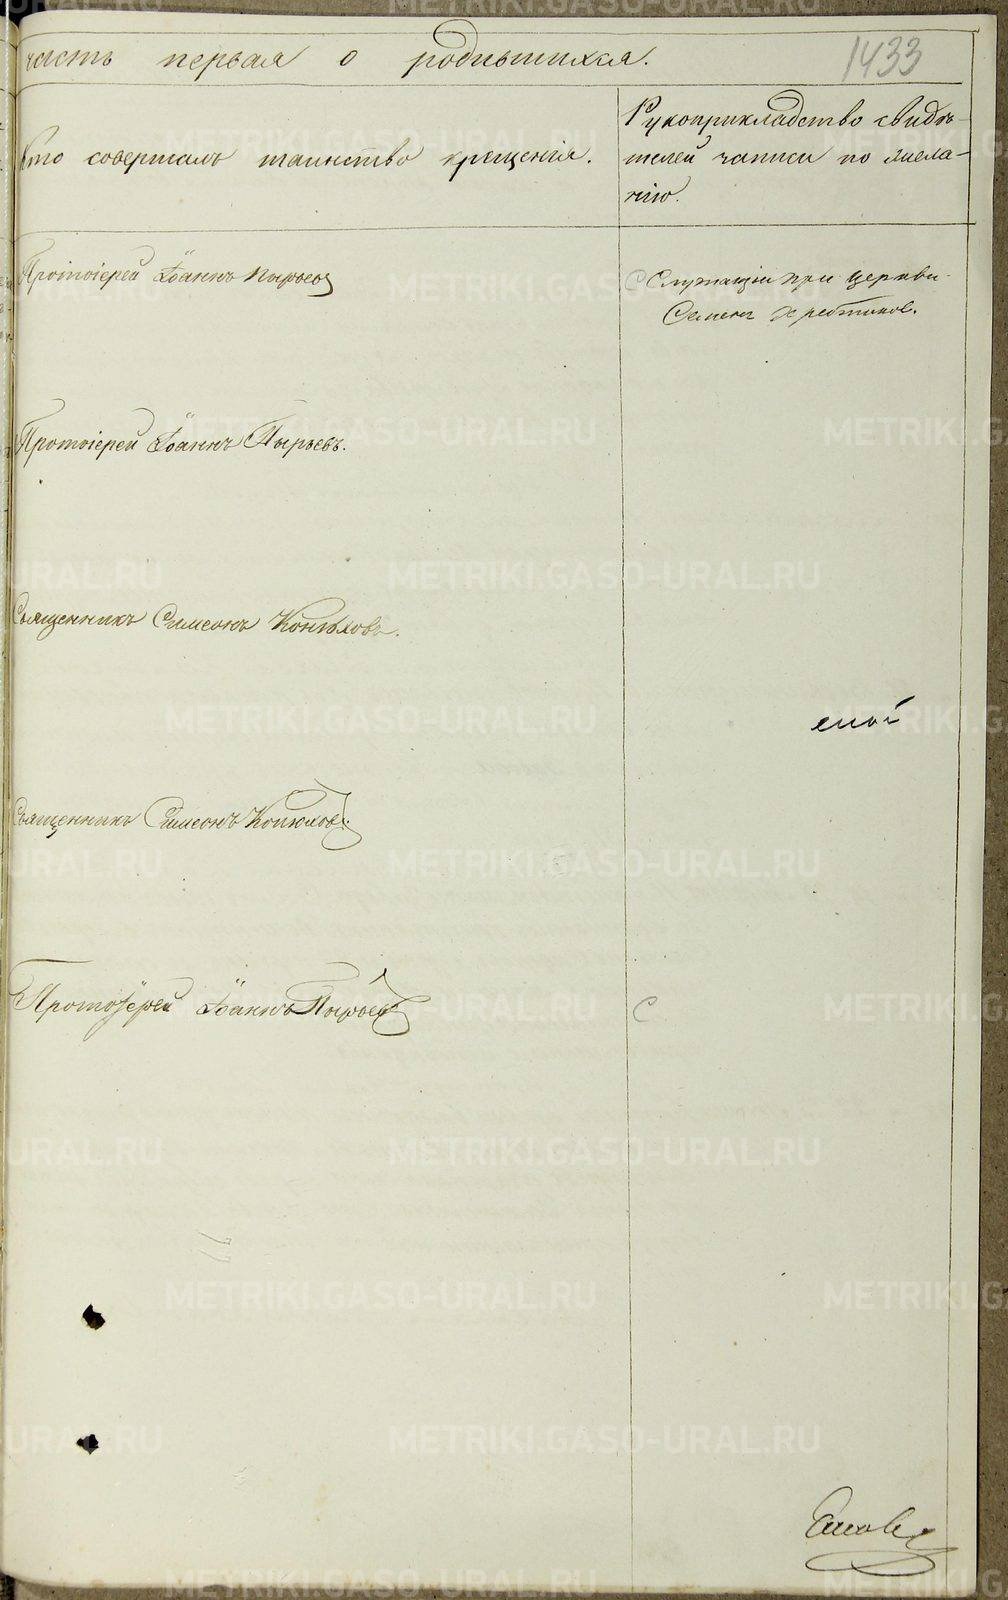 часть первая о родившихся.
1433
Кто совершалъ таинство крещенія.
Рукоприкладство свидѣ-
телей записи по жела-
нію.
Протоіерей Іоаннъ Пырьевъ
Служащій при церкви
Семенъ
Протоіерей Іоаннъ Пырьевъ.
Священникъ Симеонъ Конюховъ.
Священникъ Симеонъ Конюховъ.
Протоіерей Іоаннъ Пырьевъ
С
METRIKI.GASO-URAL.RU